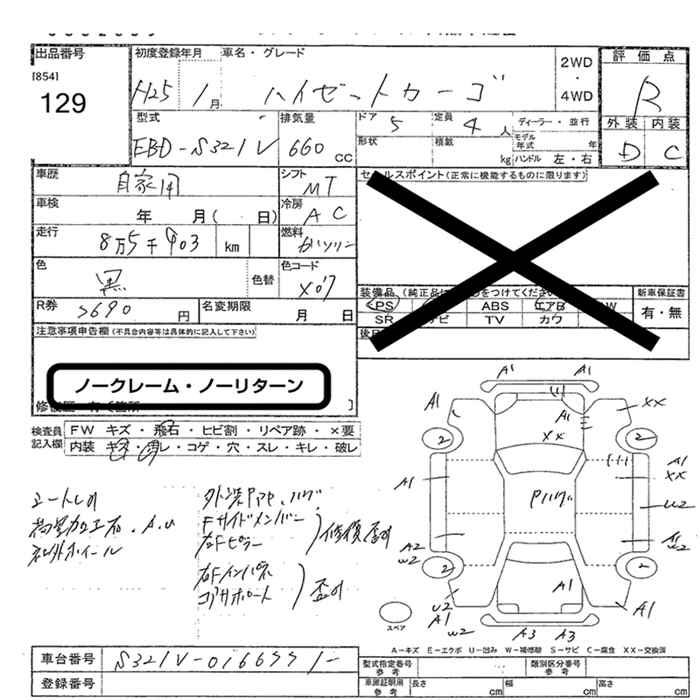 出品番号 初度登録年月 車名・グレード 評価点
[854] 129 H25年 1月 ハイゼットカーゴ 2WD・4WD R
型式 排気量 ドア 定員 ディーラー・並行 外装 内装
EBD-S321V 660cc 5 4人 モデル年式 年 D C
形状 積載 kg ハンドル 左・右
車歴 シフト セールスポイント(正常に機能するものに限ります)
自家用 MT
車検 年 月( 日) 冷房 AC
走行 8万5千903 km 燃料 ガソリン
色 黒 色替 色コード X07
装備品 (純正品に をつけてください) 新車保証書
PS ABS エアB W 有・無
SR ナビ TV カワ
R券 5690円 名変期限 月 日
注意事項申告欄(不具合内容等は具体的に記入して下さい)
ノークレーム・ノーリターン
検査員記入欄 FW キズ・飛石・ヒビ割・リペア跡・×要
内装 キズ・汚レ・コゲ・穴・スレ・キレ・破レ
シートレの
荷室加工 ・A.U
社外ホイール
Fサイドメンバー
右Fピラー
修復歪み
右Fインパネ
コアサポート
歪み
A1 A1
A1 A1 XX
2 XX 2
A1 Pハゲ A1 XX
U2
A2 W2 A1 W2
2 2
A1
U2 A1 W2 A3 A3 A1
スペア
A-キズ E-エクボ U-凹み W-補修跡 S-サビ C-腐食 XX-交換済
車台番号 S321V-
登録番号
型式指定番号 参考 類別区分番号 参考
車庫証明用 参考 長さ cm 幅 cm 高さ cm